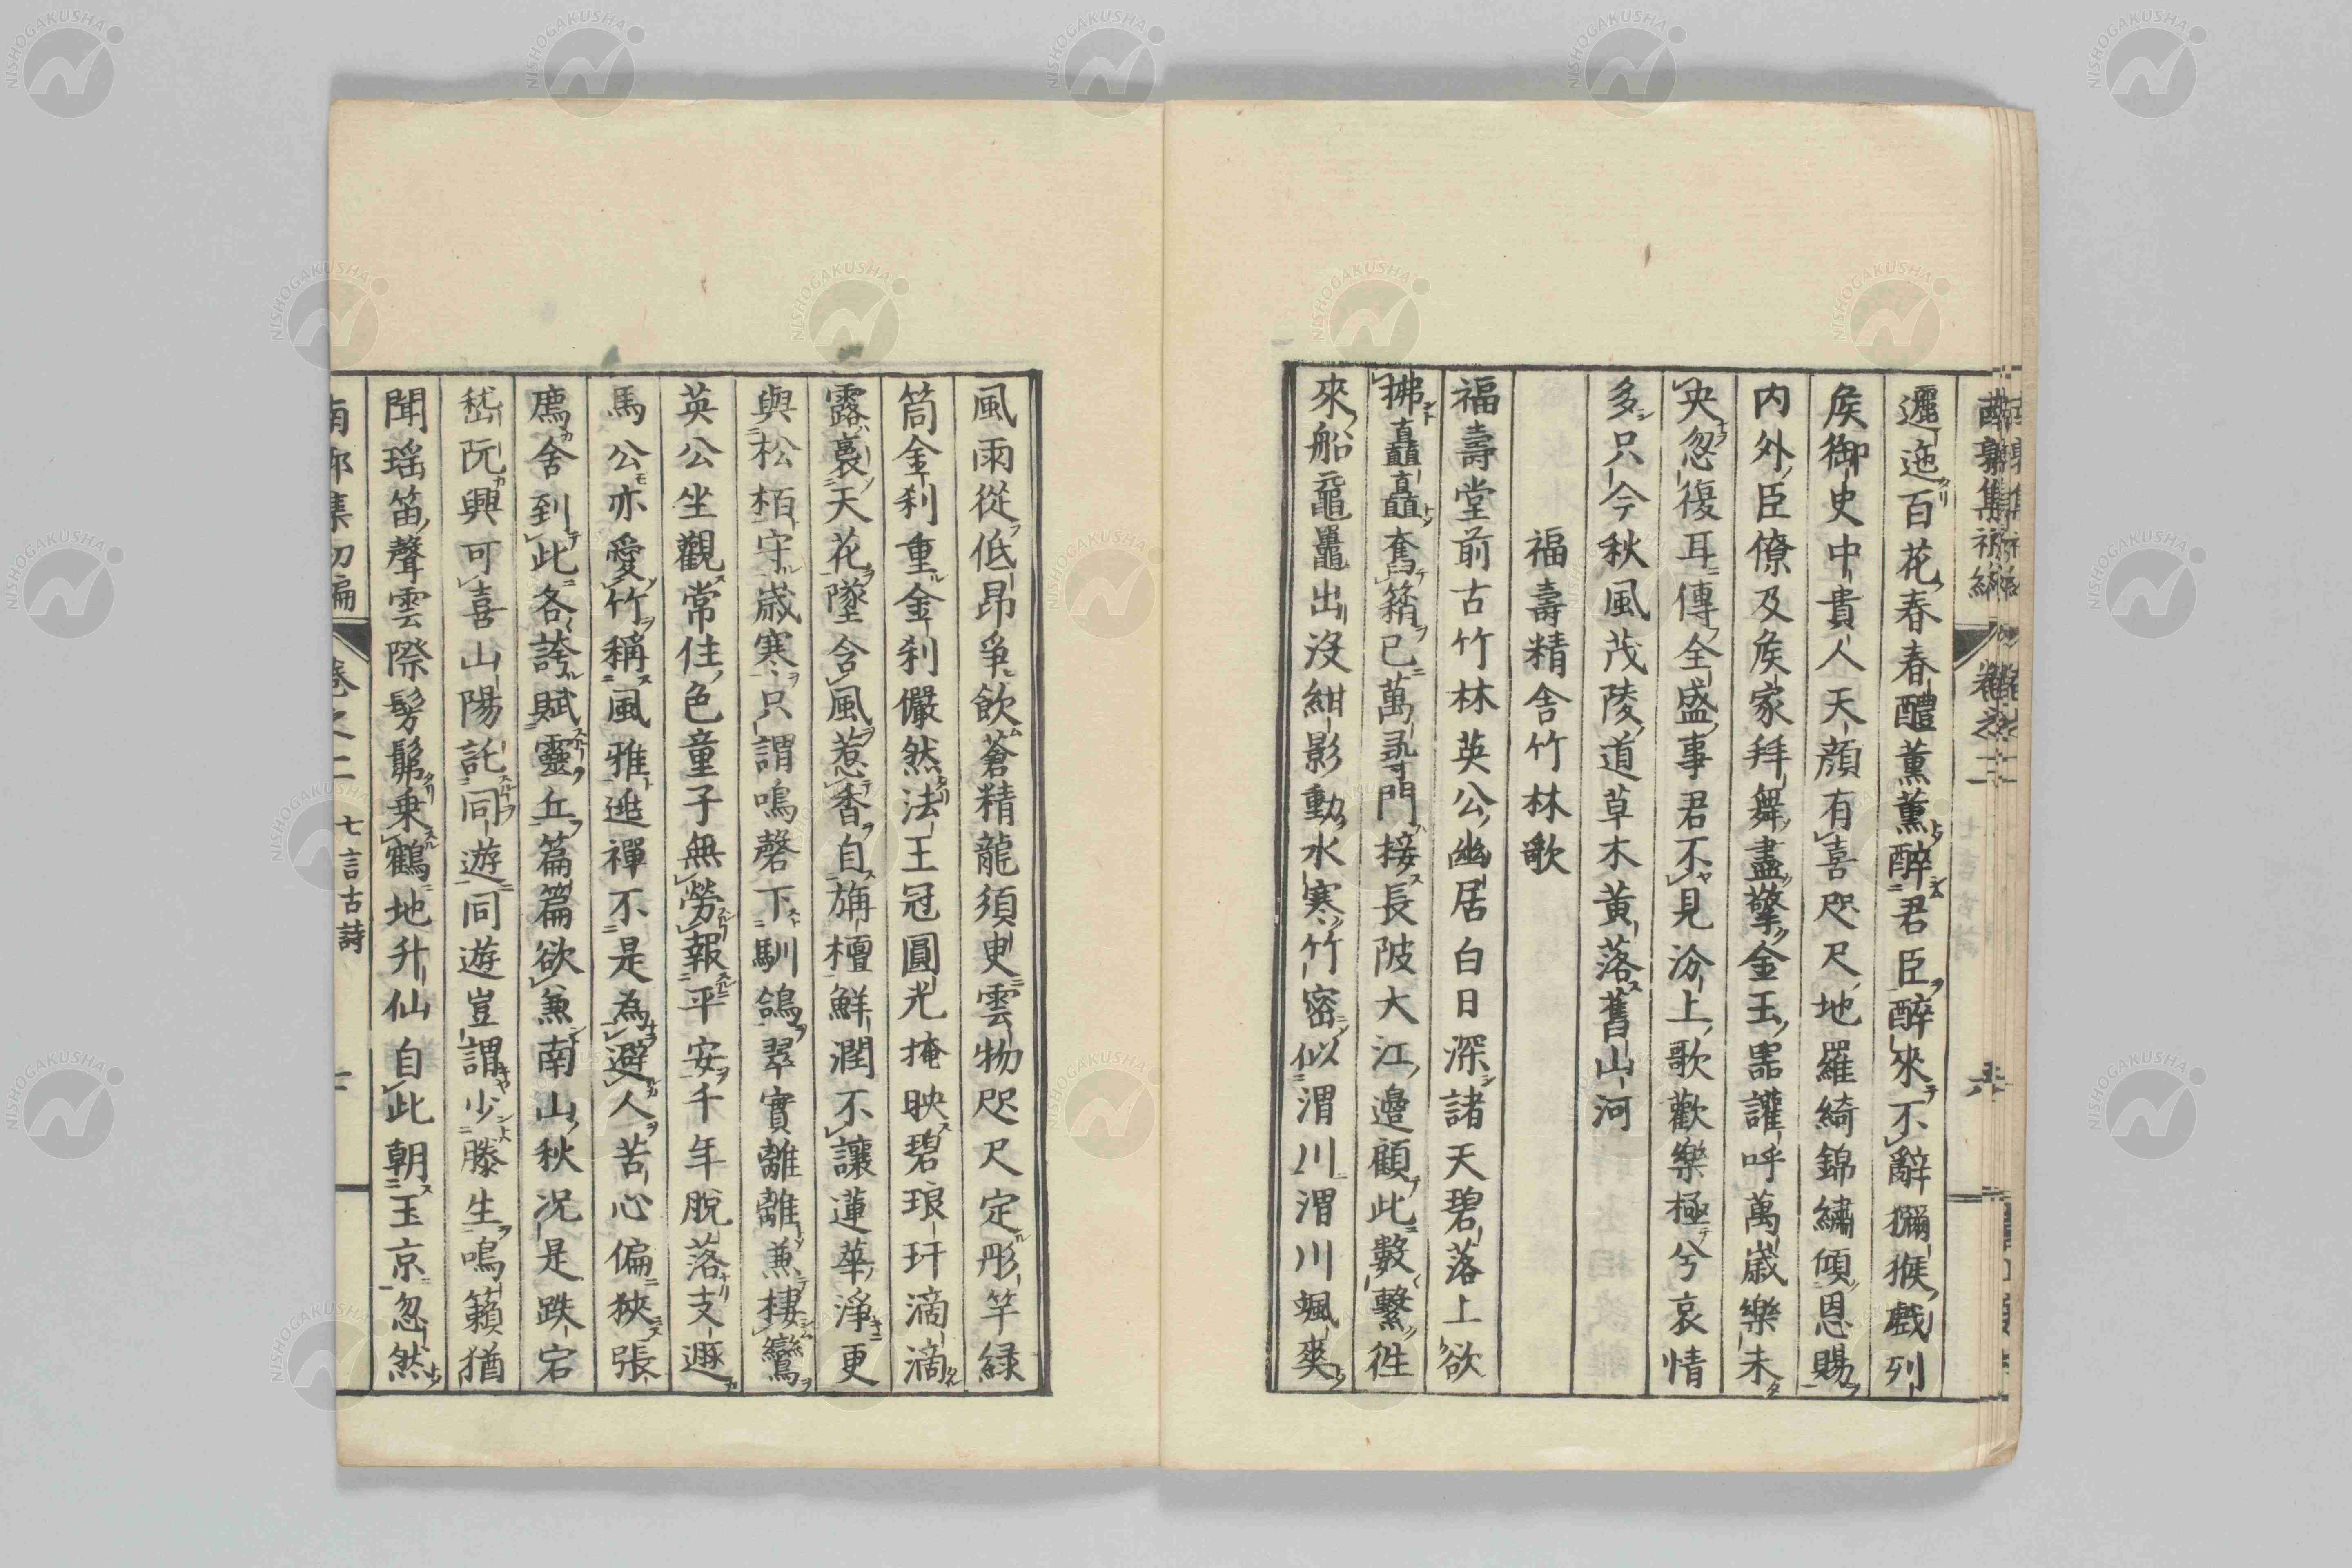 邐迤百花春春醴薰薰醉君臣醉來不辭獼猴戲列
侯御史中貴人天顏有喜咫尺地羅綺錦繡傾恩賜
内外臣僚及侯家拜舞盡擎金玉器讙呼萬歲樂未
央忽復耳傳全盛事君不見汾上歌歡樂極兮哀情
多只今秋風茂陵道草木黃落舊山河
福壽精舍竹林歌
福壽堂前古竹林英公幽居白日深諸天碧落上欲
拂矗矗奮籜已萬尋門接長陂大江邊顧此數繫往
來船黿鼉出沒紺影動水寒竹密似渭川渭川颯爽
風雨從低昂爭飲蒼精龍須臾雲物咫尺定彤竿緑
筒金刹重金刹儼然法王冠圓光掩映碧琅玕滴滴
露裛天花墜含風惹香自旃檀鮮潤不讓蓮華淨更
與松栢守歲寒只謂鳴磬下馴鴿翠實離離兼棲鸞
英公坐觀常住色童子無勞報平安千年脫落支遯
馬公亦愛竹稱風雅逃禪不是為避人苦心偏狹張
廌舍到此各誇賦靈丘篇篇欲兼南山秋況是跌宕
嵇阮興可喜山陽託同遊同遊豈謂少滕生鳴籟猶
聞瑤笛聲雲際髣髴乗鶴地升仙自此朝玉京忽然
南郭集初編 卷之二 七言古詩